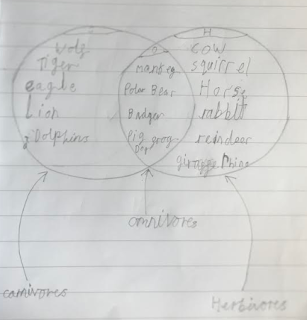 H
Wolf
Tiger
eagle
Lion
Dolphins
O
monkey
Polar Bear
Badger
pig
cow
squirrel
Horse
rabbit
reindeer
giraffe Rhino
omnivores
carnivores
Herbivores